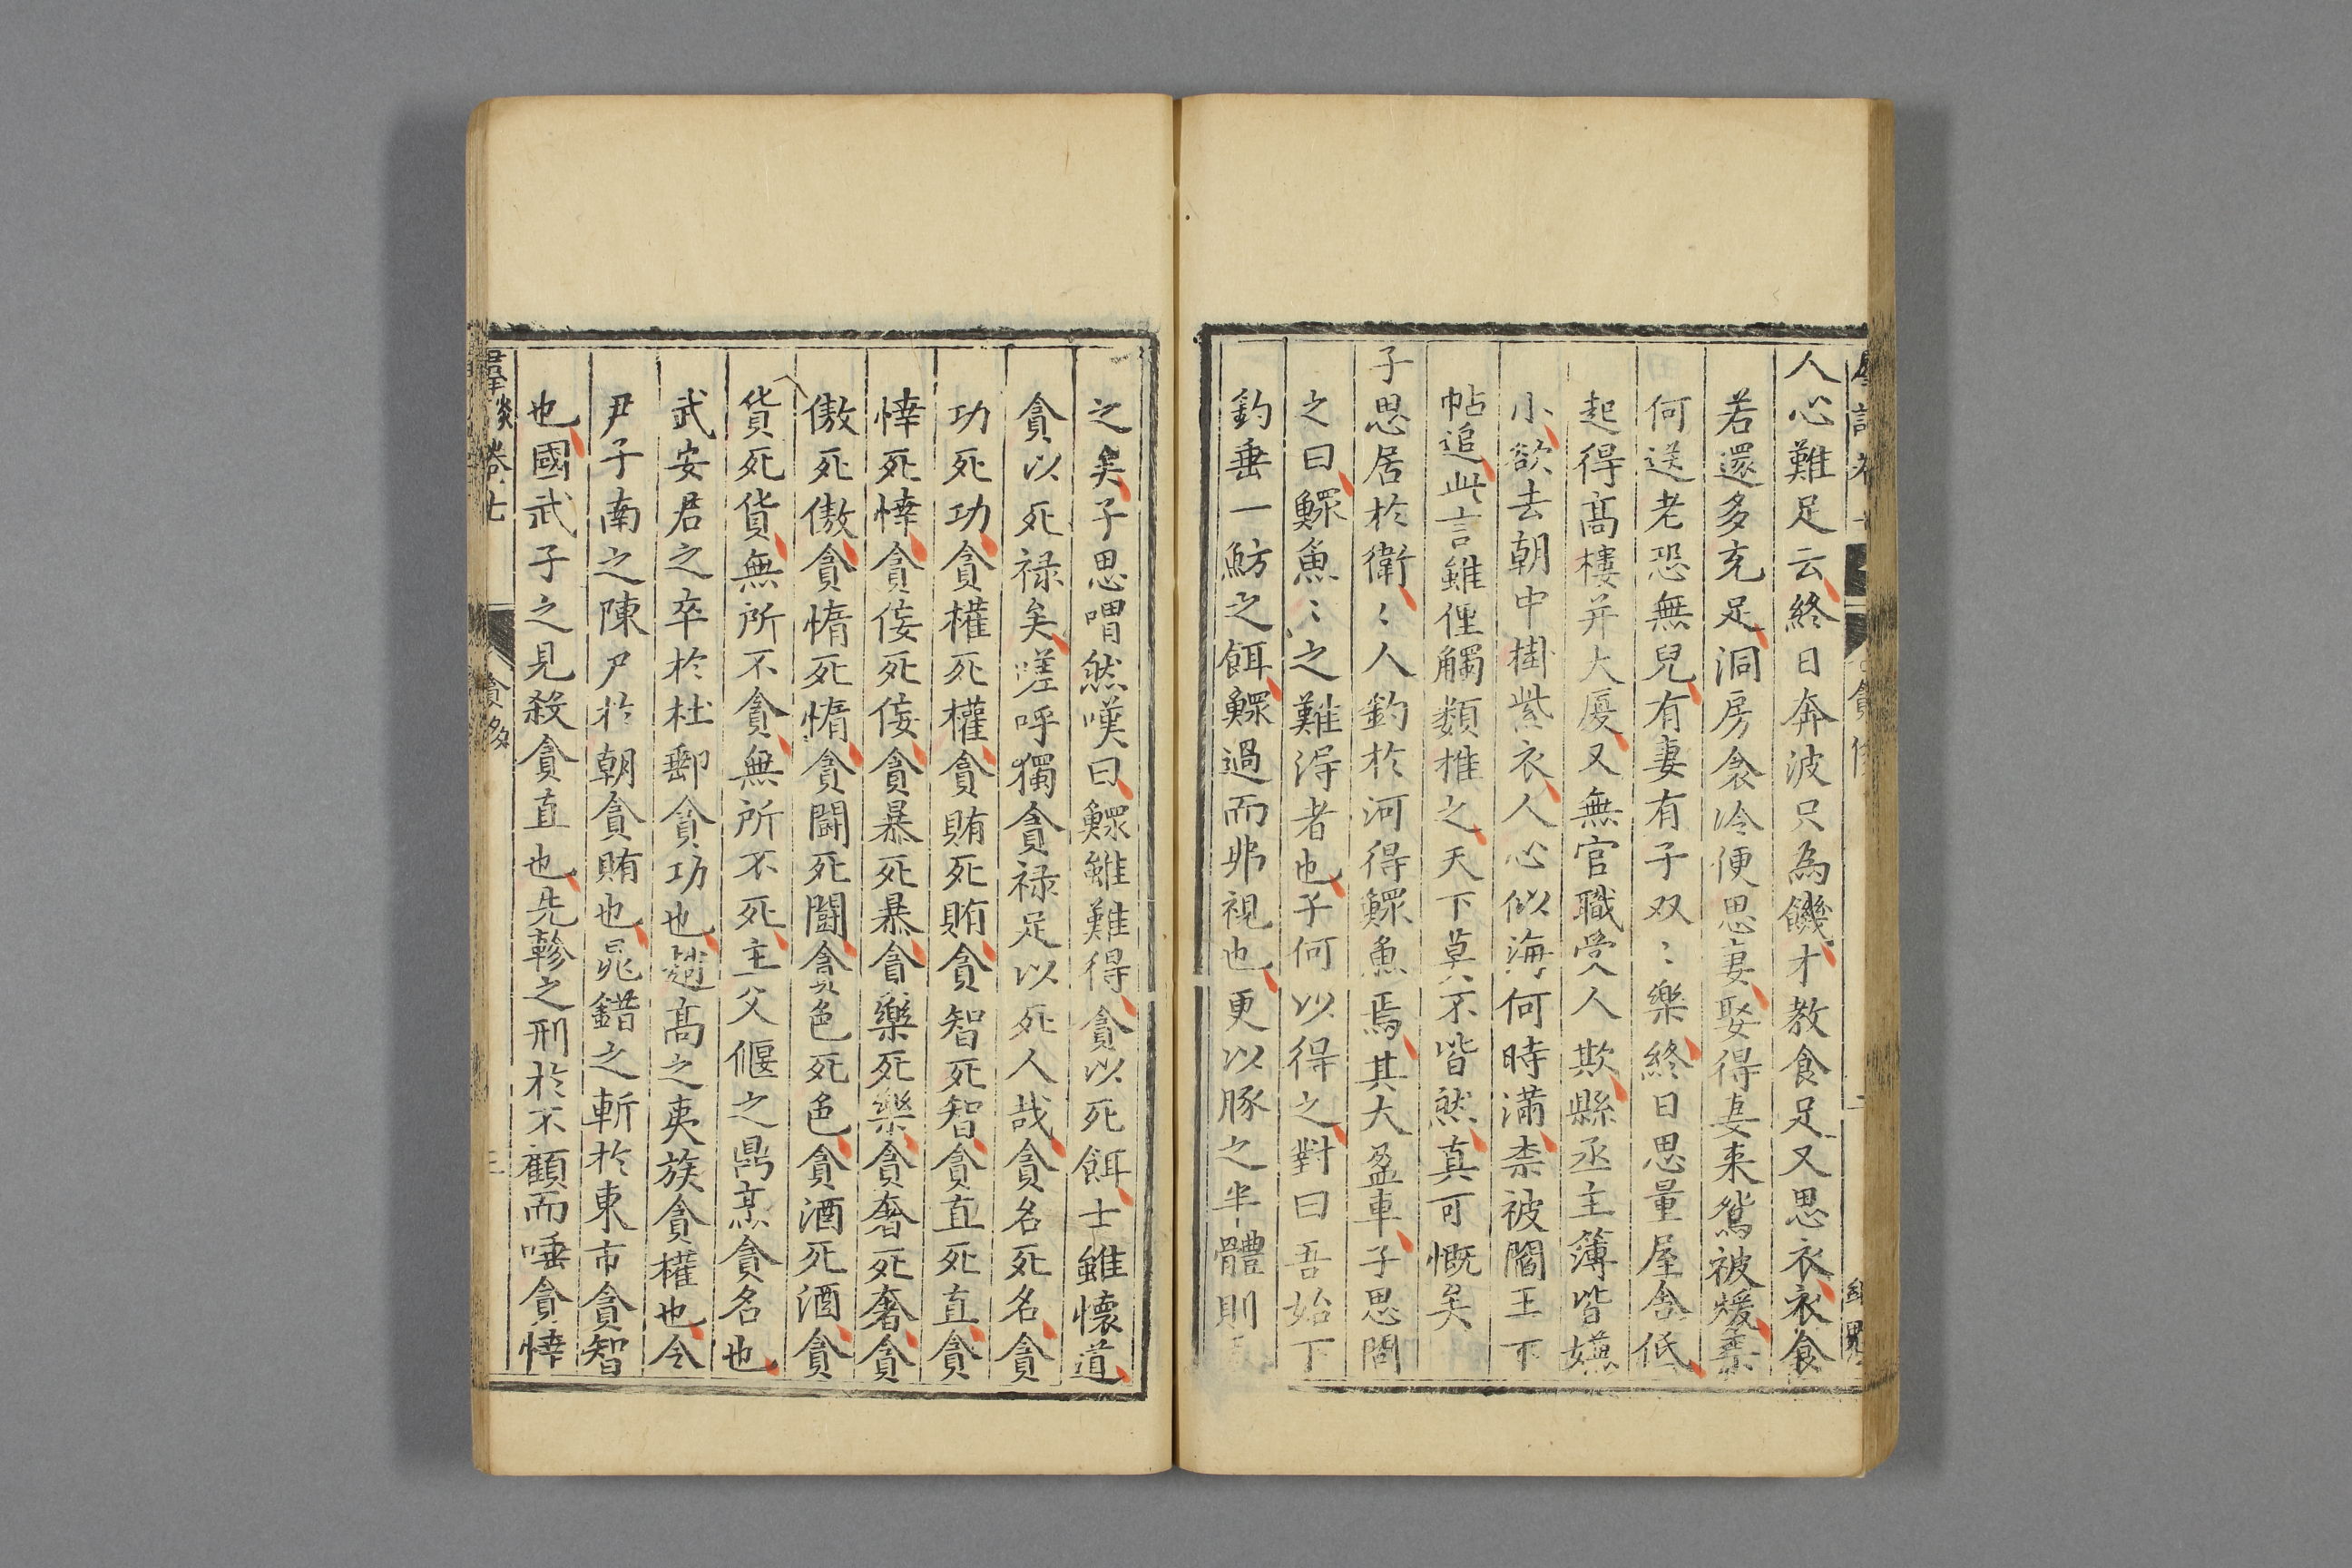 人心難足云終日奔波只為饑才教食足又思衣衣食
若還多充足洞房衾冷便思妻娶得妻来鴛被煖柰
何送老恐無兒有妻有子双〻樂終日思量屋舎低
起得髙樓并大厦又無官職受人欺縣丞主簿皆嫌
小欲去朝中掛紫衣人心似海何時滿柰被閻王下
帖追此言雖俚觸類推之天下莫不皆然真可慨矣
子思居於衛〻人釣於河得鰥魚焉其大盈車子思問
之曰鰥魚〻之難淂者也子何以得之對曰吾始下
釣垂一魴之餌鰥過而弗視也更以豚之半體則
之矣子思喟然嘆曰鰥雖難得貪以死餌士雖懷道
貪以死禄矣嗟呼獨貪禄足以死人哉貪名死名貪
功死功貪權死權貪賄死賄貪智死智貪直死直貪
悻死悻貪佞死佞貪暴死暴貪樂死樂貪奢死奢貪
傲死傲貪惰死惰貪闘死闘貪色死色貪酒死酒貪
貨死貨無所不貪無所不死主父偃之鼎烹貪名也
武安君之卒於杜郵貪功也趙髙之夷族貪權也令
尹子南之陳尸於朝貪賄也晁錯之斬於東市貪智
也國武子之見殺貪直也先軫之刑於不顧而唾貪悻
羣談卷七 貪多 三